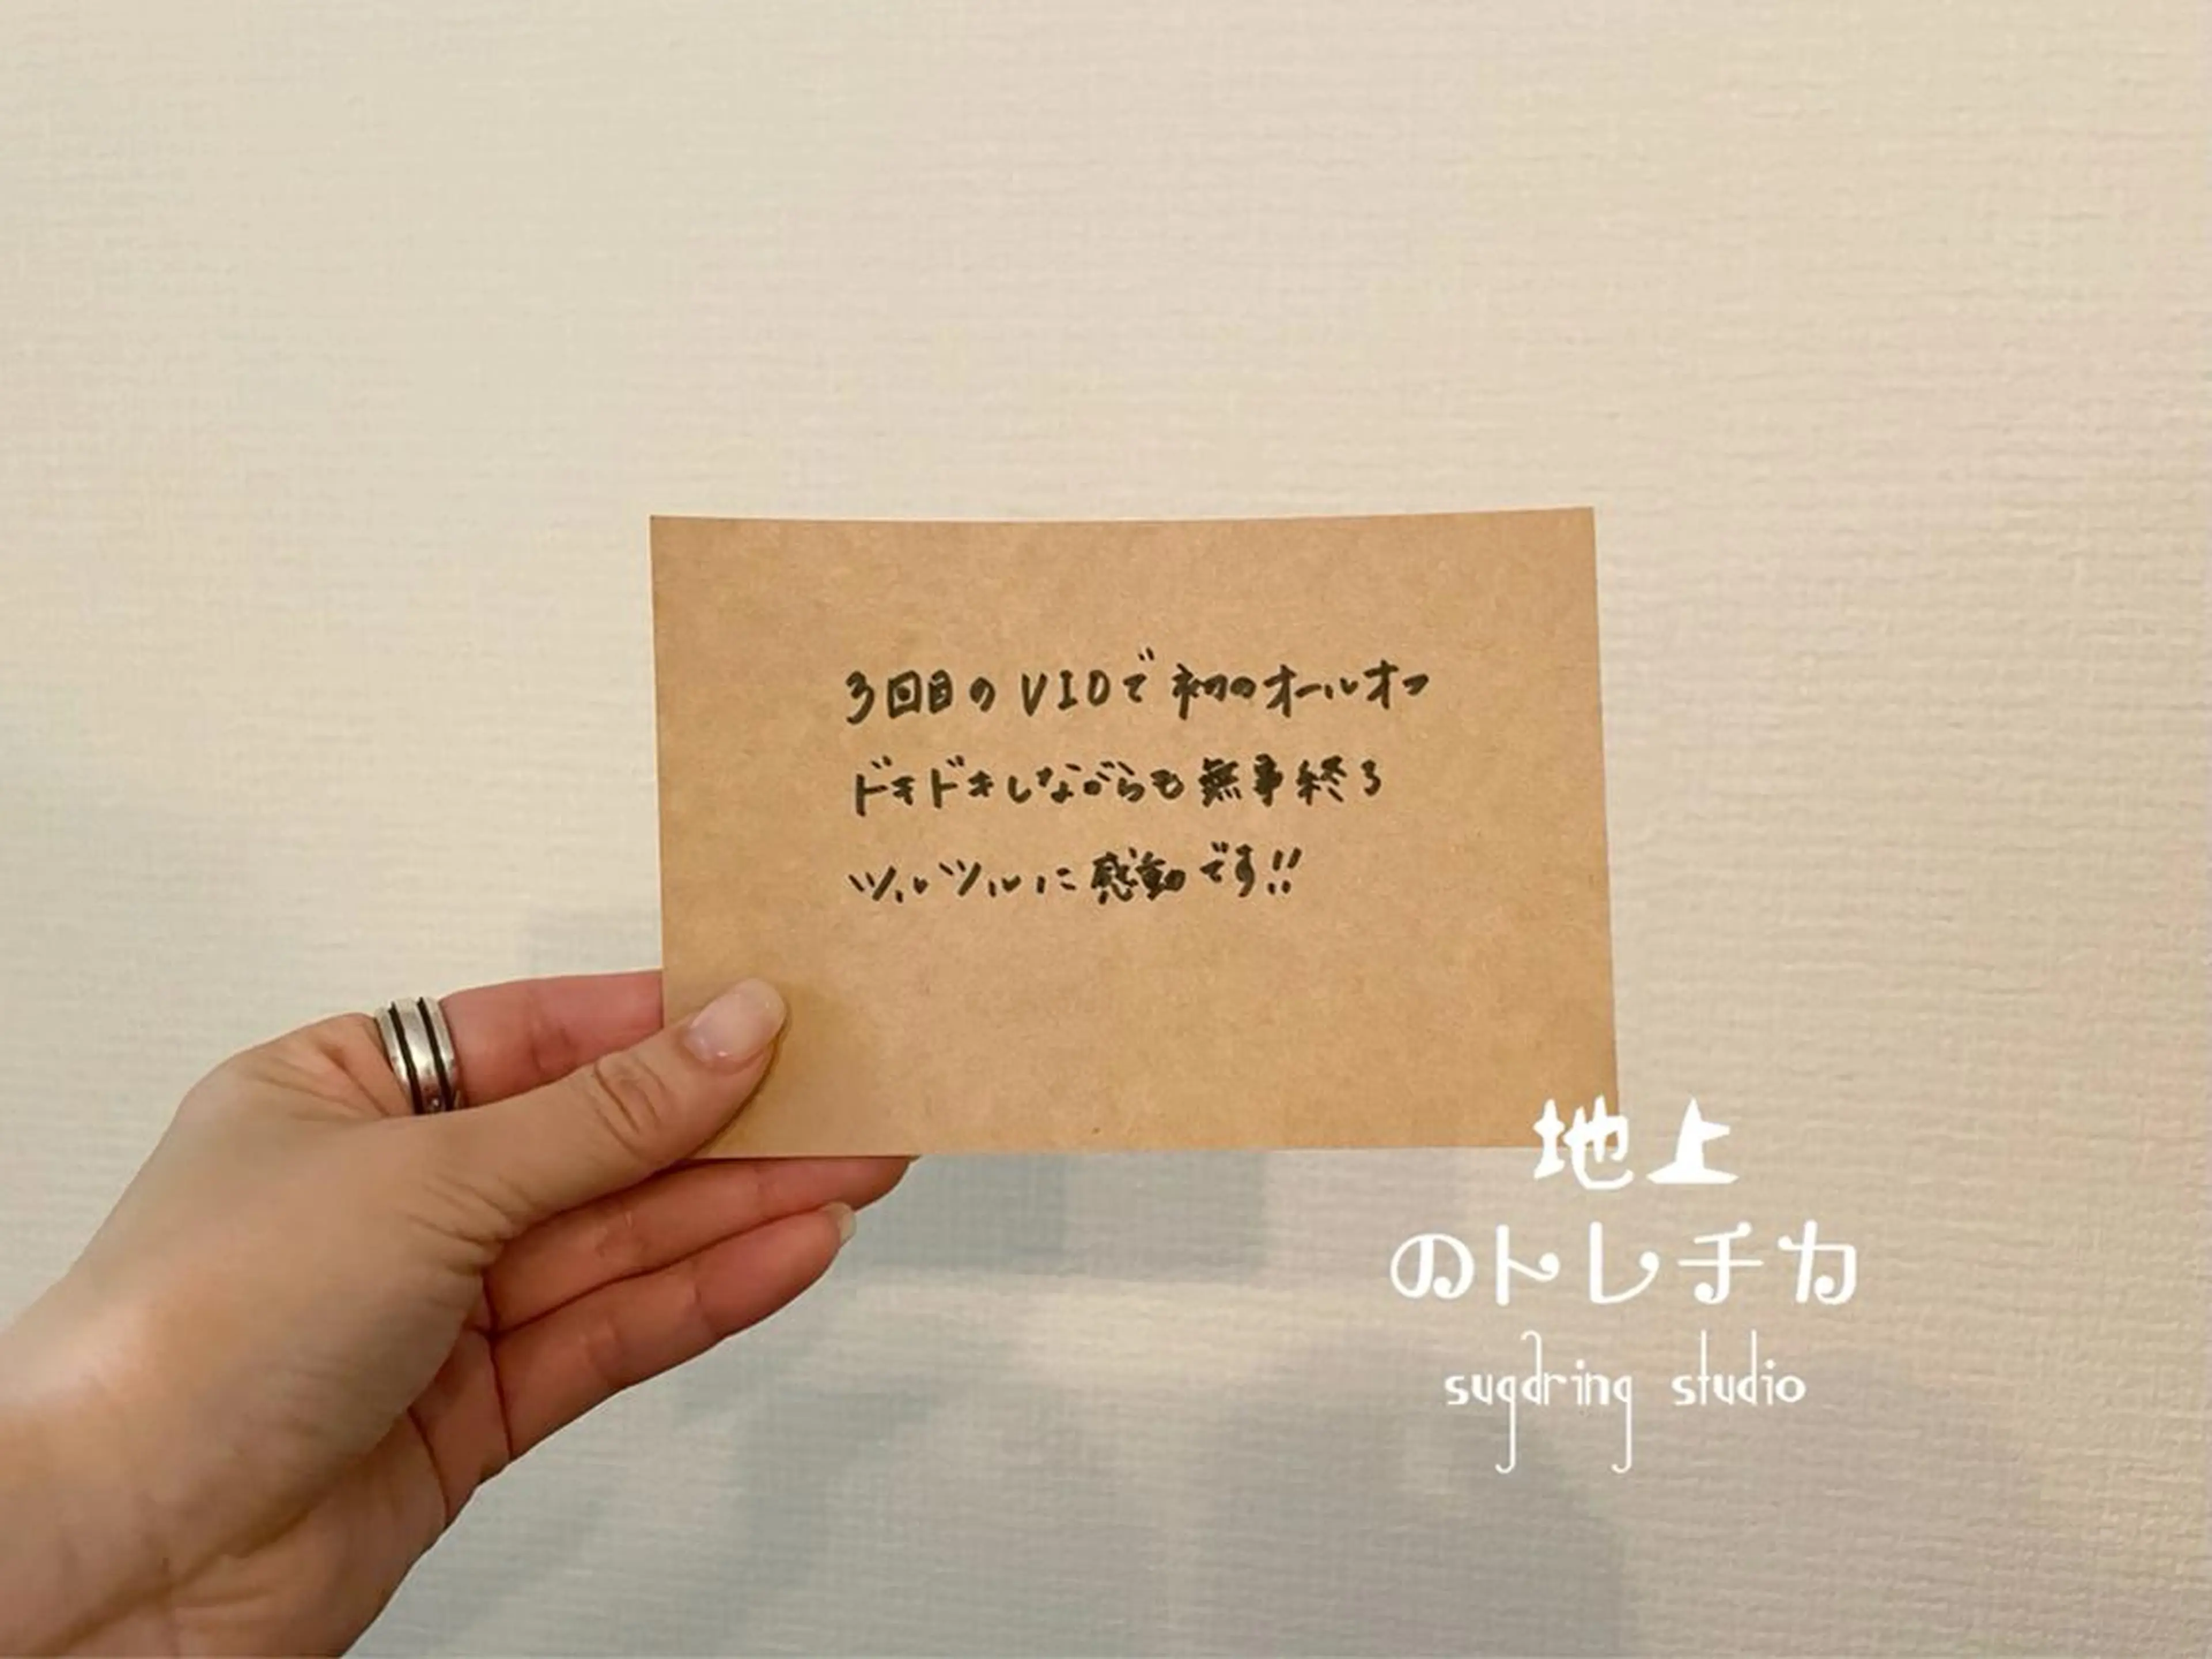 3回目のVIOで初のオールオフ
ドキドキしながらも無事終る
ツルツルに感動です!!
地上
のトレチカ
sugaring studio